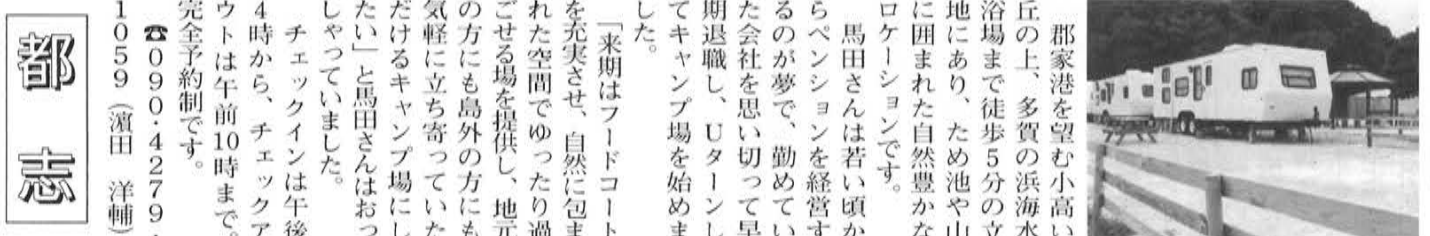 郡家港を望む小高い
丘の上、多賀の浜海水
浴場まで徒歩5分の立
地にあり、ため池や山
に囲まれた自然豊かな
ロケーションです。
馬田さんは若い頃か
らペンションを経営す
るのが夢で、勤めてい
た会社を思い切って早
期退職し、Uターンし
てキャンプ場を始めま
した。
「来期はフードコート
を充実させ、自然に包ま
れた空間でゆったり過
ごせる場を提供し、地元
の方にも島外の方にも
気軽に立ち寄っていた
だけるキャンプ場にし
たい」と馬田さんはおっ
しゃっていました。
チェックインは午後
4時から、チェックア
ウトは午前10時まで。
完全予約制です。
☎090・4279・
1059（濱田 洋輔）
都志